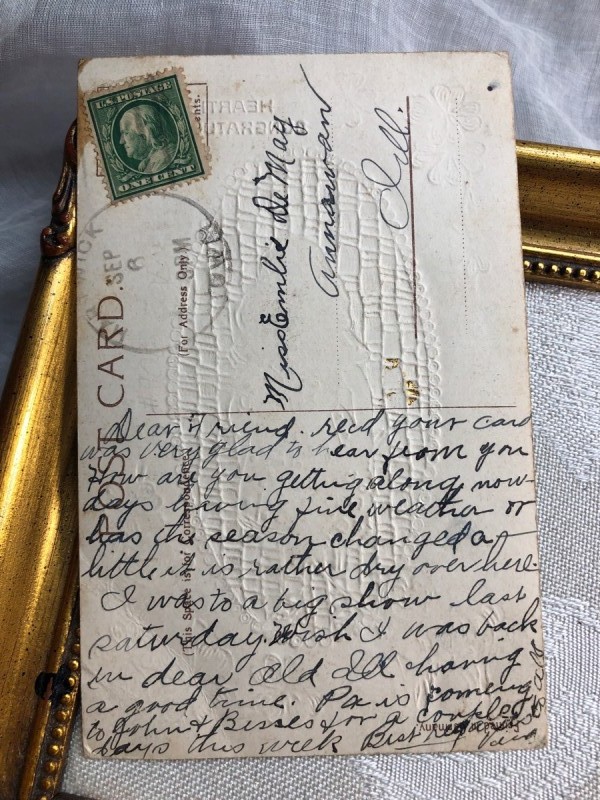 U.S. POSTAGE
ONE CENT
POST CARD.
SEP
6
IOWA
(For Address Only
This Space is for Correspondence
Miss Emblie De May
Annawan
Ill.
Dear Friend. recd your card
was very glad to hear from you
How are you getting along now
days having fine weather or
has the season changed a
little it is rather dry over here.
I was to a big show last
saturday. Wish I was back
in dear Old Ill having
a good time. Pa is coming
to John & Besses for a couple
days this week Best Reg
to all